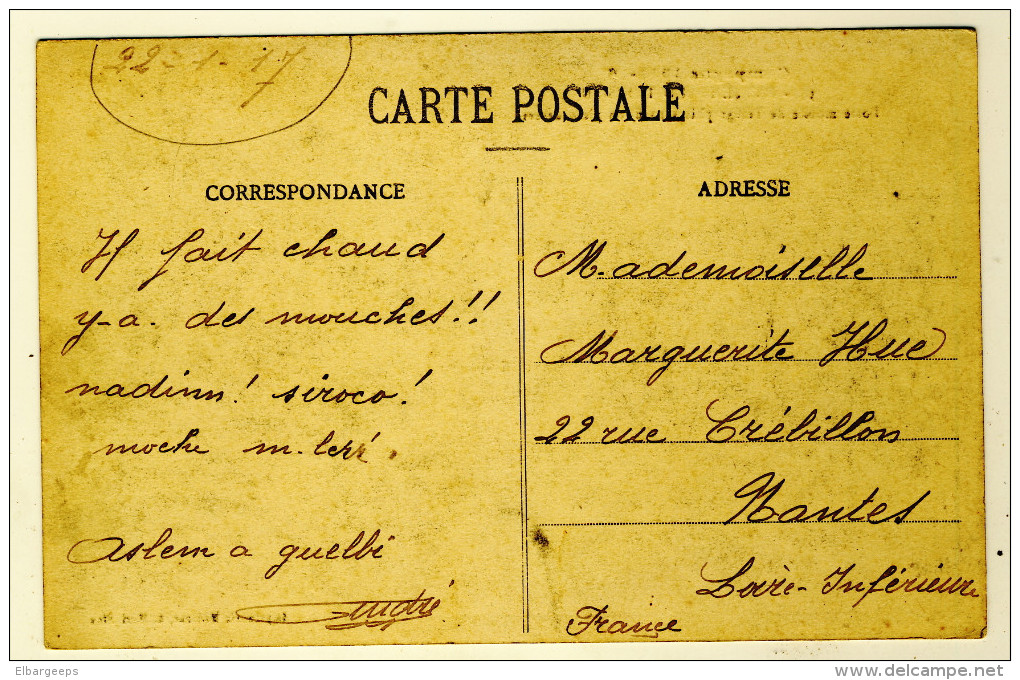 22-1-17
CARTE POSTALE
CORRESPONDANCE
Il fait chaud
y-a. des mouches!!
nadinn! siroco!
moche
Aslem a guelbi
André
ADRESSE
M.ademoiselle
Marguerite Hue
22 rue Crébillon
Nantes
Loire-Inférieure
France
Elbargeeps
delcampe.net